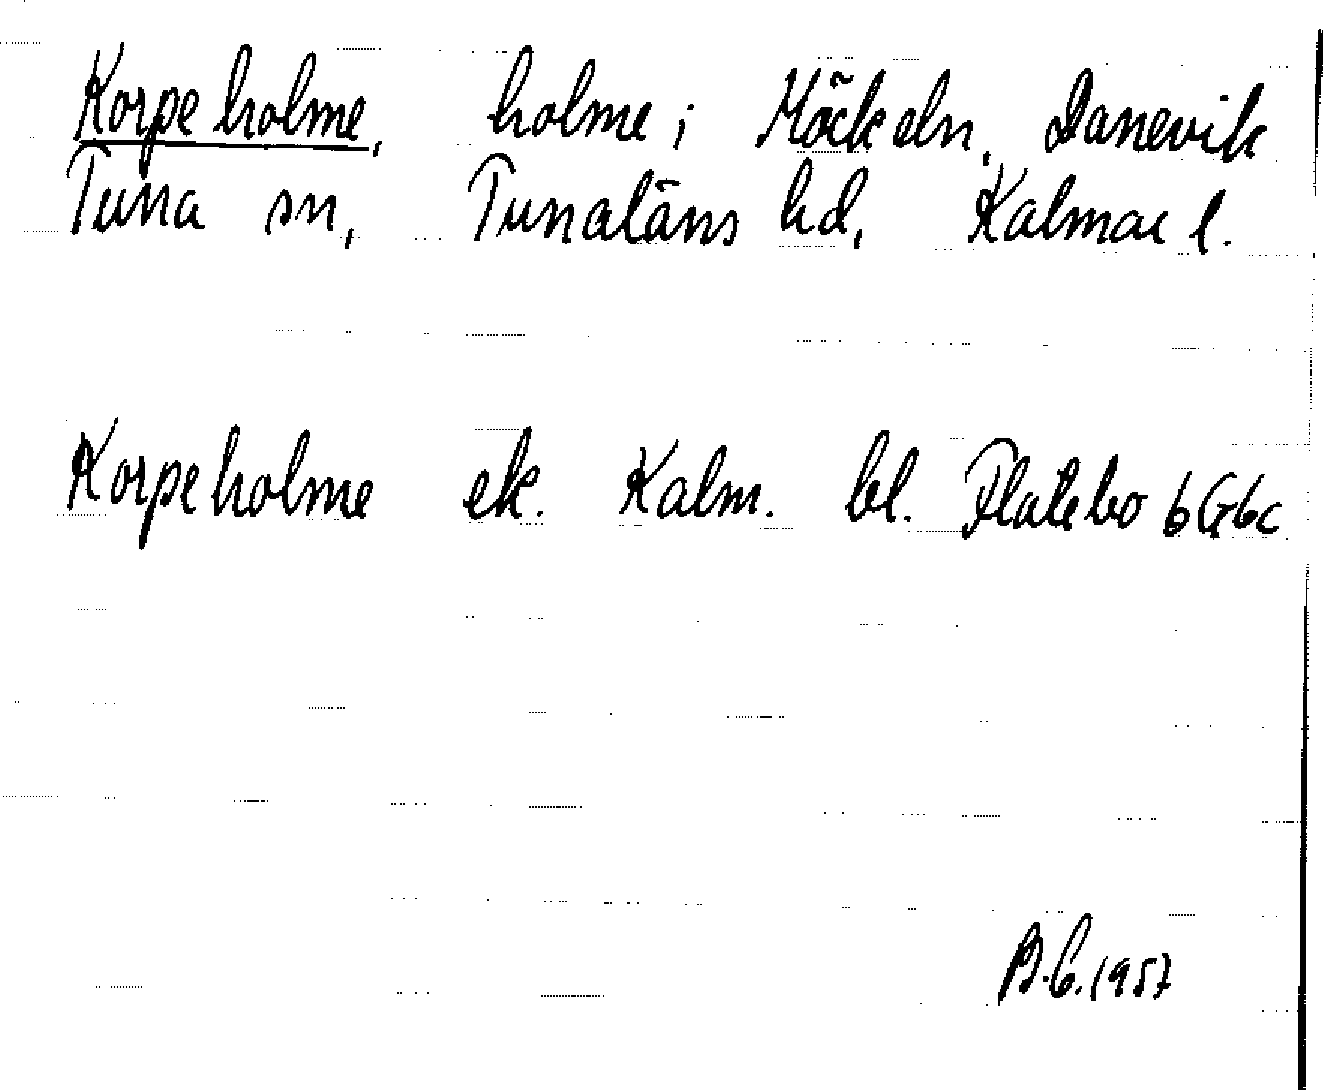 Korpeholme, holme i Möckeln, Danevik
Tuna sn, Tunaläns hd, Kalmar l.
Korpeholme ek. Kalm. bl. Flatebo 6G6c
B.E. 1957